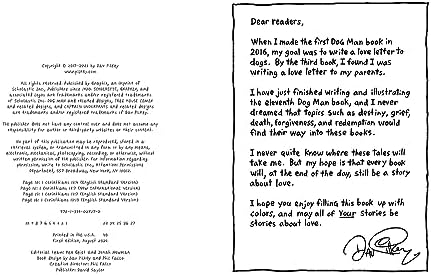 Copyright © 2017-2023 by Dav Pilkey
www.pilkey.com
All rights reserved. Published by Graphix, an imprint of
Scholastic Inc., Publishers since 1920. SCHOLASTIC, GRAPHIX, and
associated logos are trademarks and/or registered trademarks of
Scholastic Inc. DOG MAN and related designs, TREE HOUSE COMIX
and related designs, and CAPTAIN UNDERPANTS and related designs
are trademarks and/or registered trademarks of Dav Pilkey.
The publisher does not have any control over and does not assume any
responsibility for author or third-party websites or their content.
No part of this publication may be reproduced, stored in a
retrieval system, or transmitted in any form or by any means,
electronic, mechanical, photocopying, recording, or otherwise, without
written permission of the publisher. For information regarding
permission, write to Scholastic Inc., Attention: Permissions
Department, 557 Broadway, New York, NY 10012.
(English Standard Version)
(New International Version)
(English Standard Version)
(English Standard Version)
Printed in the U.S.A.
First edition, August
Editorial team: Ken Geist and Jonah Newman
Book design by Dav Pilkey and Phil Falco
Creative director: Phil Falco
Publisher: David Saylor
Dear readers,
When I made the first Dog Man book in
2016, my goal was to write a love letter to
dogs. By the third book, I found I was
writing a love letter to my parents.
I have just finished writing and illustrating
the eleventh Dog Man book, and I never
dreamed that topics such as destiny, grief,
death, forgiveness, and redemption would
find their way into these books.
I never quite know where these tales will
take me. But my hope is that every book
will, at the end of the day, still be a story
about love.
I hope you enjoy filling this book up with
colors, and may all of Your stories be
stories about love.
Dav Pilkey